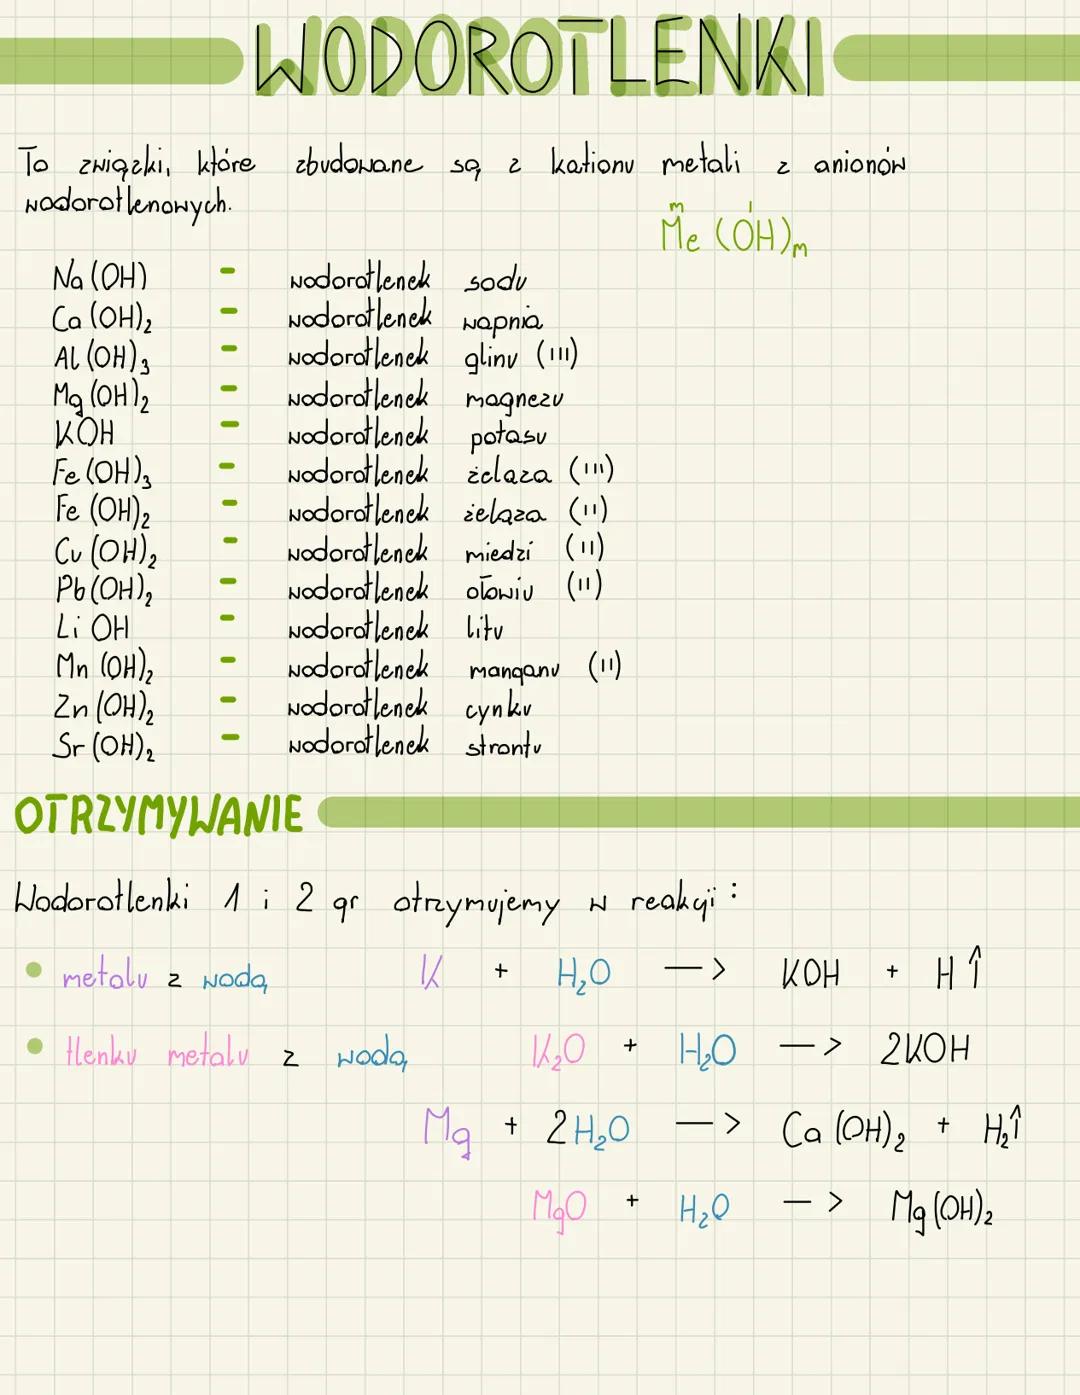 WODOROTLENKI
To związki, które zbudowane są z kationu metali z anionów
wodorotlenowych.
m I
Me (OH)m
Na (OH) - wodorotlenek sodu
Ca (OH)₂ - wodorotlenek wapnia
Al (OH)₃ - wodorotlenek glinu (III)
Mg (OH)₂ - wodorotlenek magnezu
KOH - wodorotlenek potasu
Fe (OH)₃ - wodorotlenek żelaza (III)
Fe (OH)₂ - wodorotlenek żelaza (II)
Cu (OH)₂ - wodorotlenek miedzi (II)
Pb (OH)₂ - wodorotlenek ołowiu (II)
Li OH - wodorotlenek litu
Mn (OH)₂ - wodorotlenek manganu (II)
Zn (OH)₂ - wodorotlenek cynku
Sr (OH)₂ - wodorotlenek strontu
OTRZYMYWANIE
Wodorotlenki 1 i 2 gr otrzymujemy w reakcji:
• metalu z wodą K + H₂O —> KOH + H↑
• tlenku metalu z wodą K₂O + H₂O —> 2KOH
Mg + 2H₂O —> Ca (OH)₂ + H₂↑
MgO + H₂O —> Mg (OH)₂